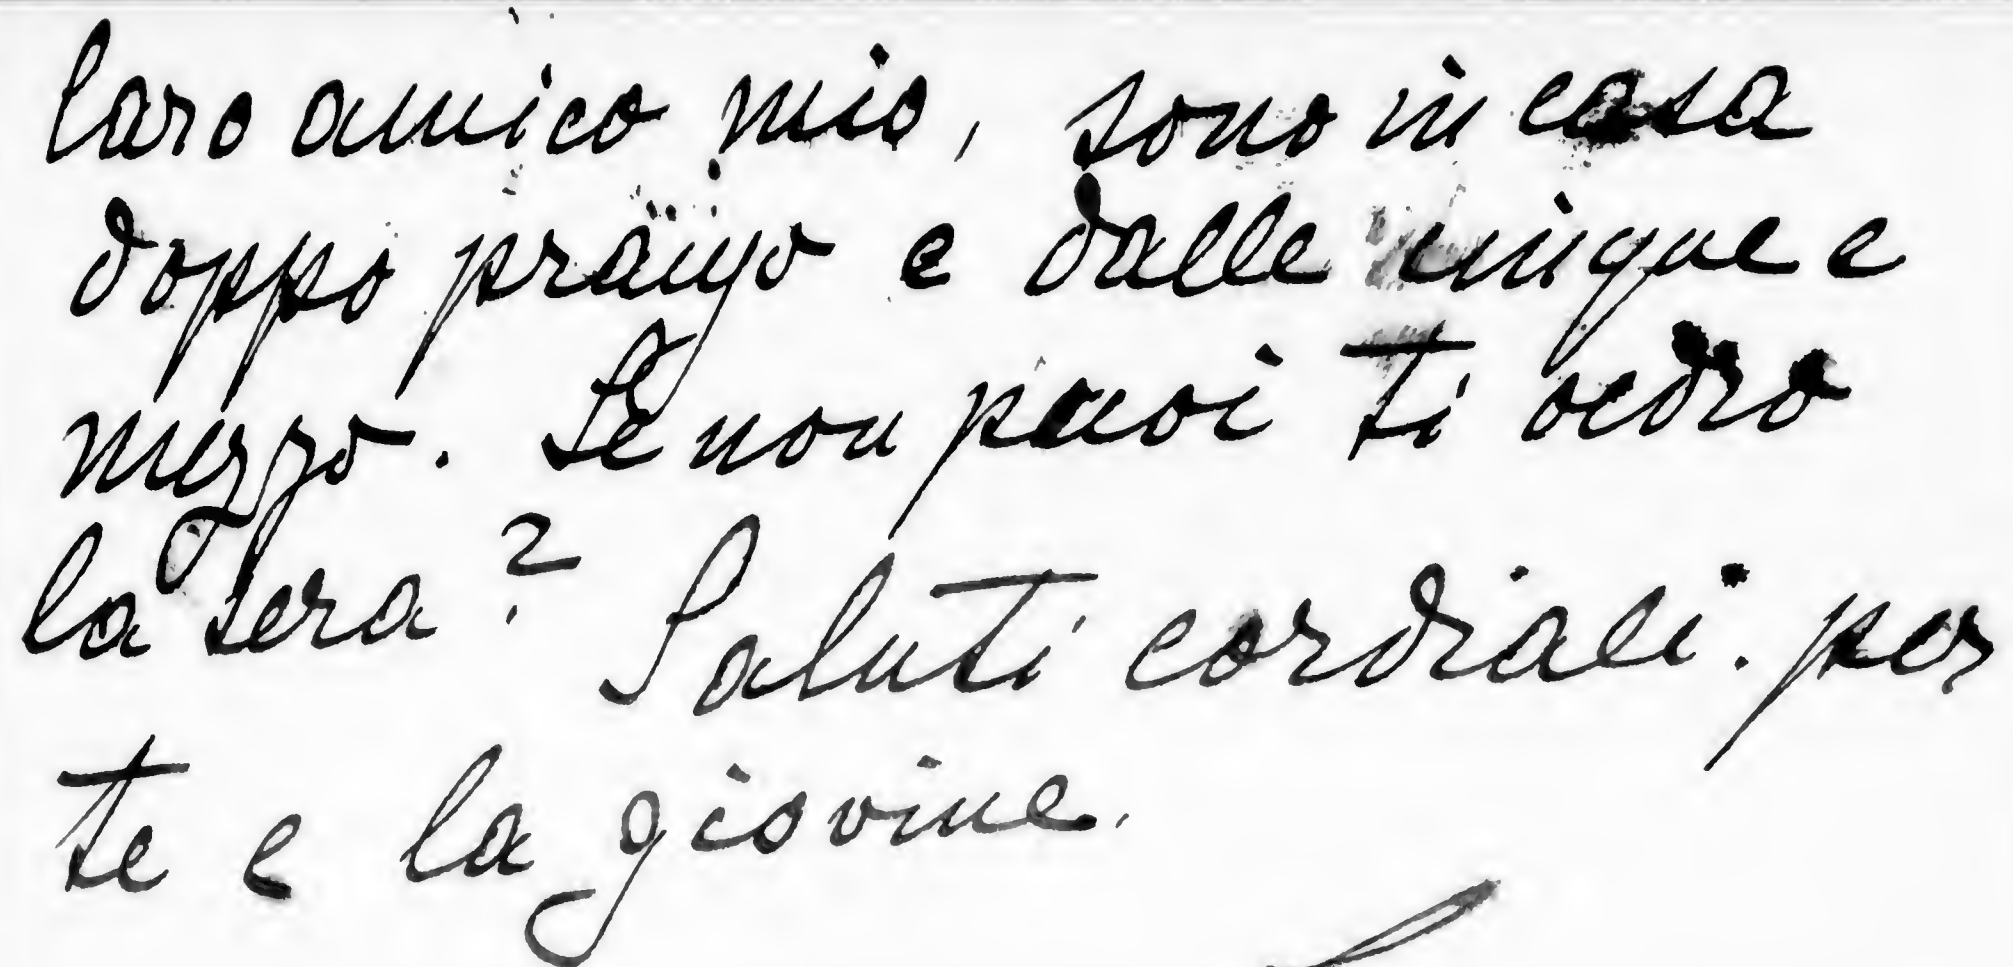 Caro amico mio, sono in casa
doppo pranzo e dalle cinque e
mezzo. Se non puoi ti vedro
la sera? Saluti cordiali. per
te e la giovine.